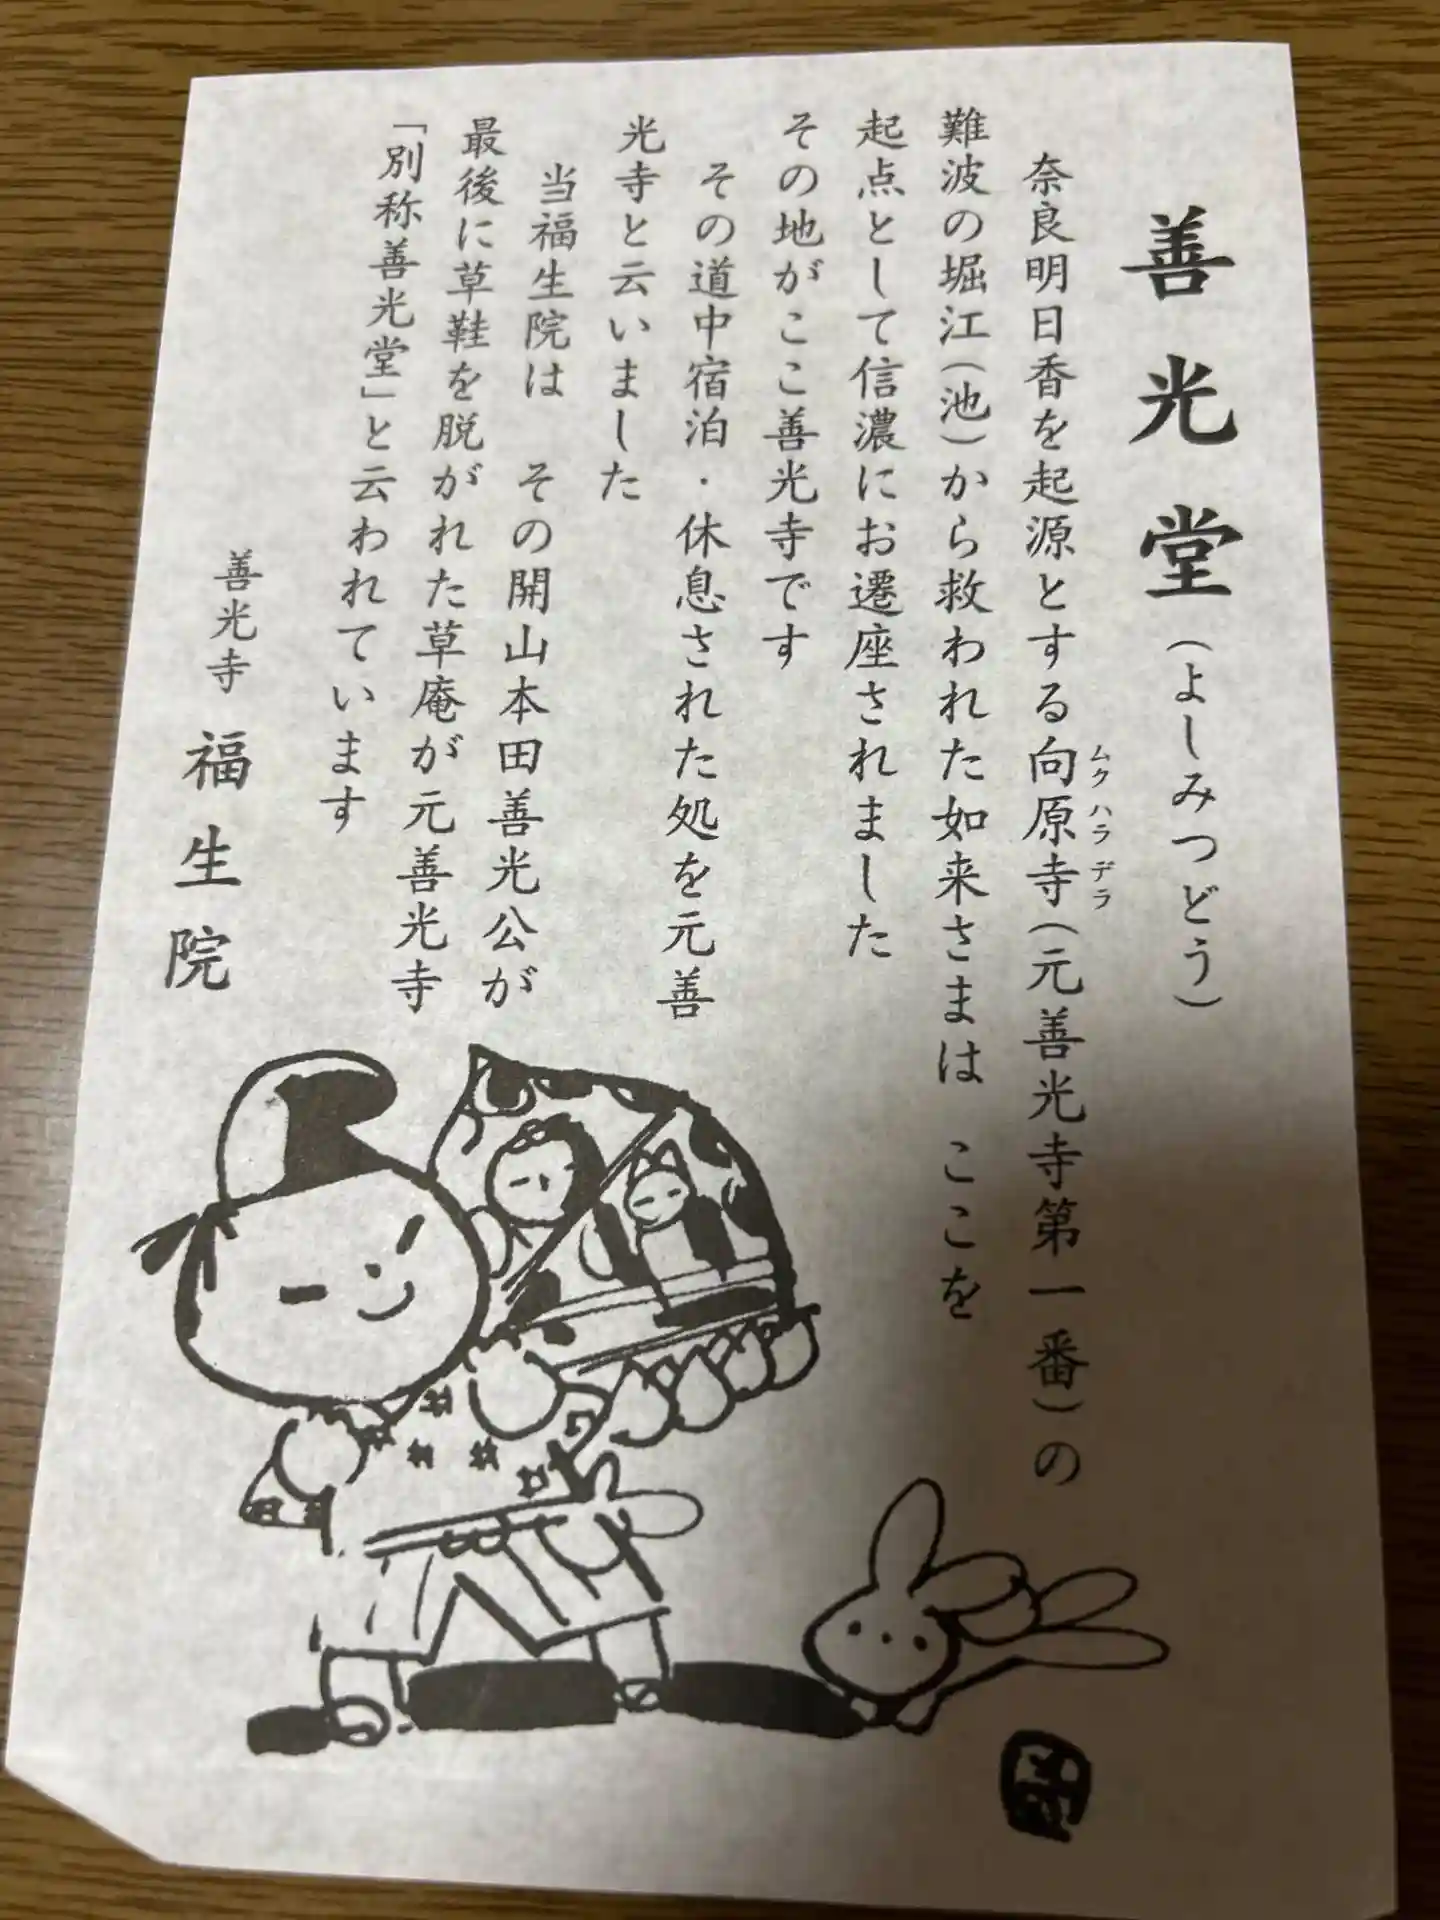 善光堂(よしみつどう)
奈良明日香を起源とする向原寺(元善光寺第一番)の
ムクハラデラ
難波の堀江(池)から救われた如来さまは　ここを
起点として信濃にお遷座されました
その地がここ善光寺です
その道中宿泊・休息された処を元善
光寺と云いました
当福生院は　その開山本田善光公が
最後に草鞋を脱がれた草庵が元善光寺
「別称善光堂」と云われています
善光寺 福生院